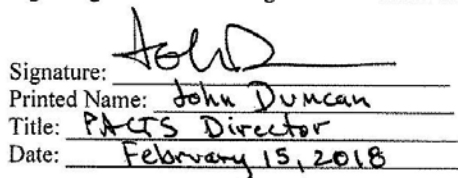 Signature: John D
Printed Name: John Duncan
Title: PACTS Director
Date: February 15, 2018